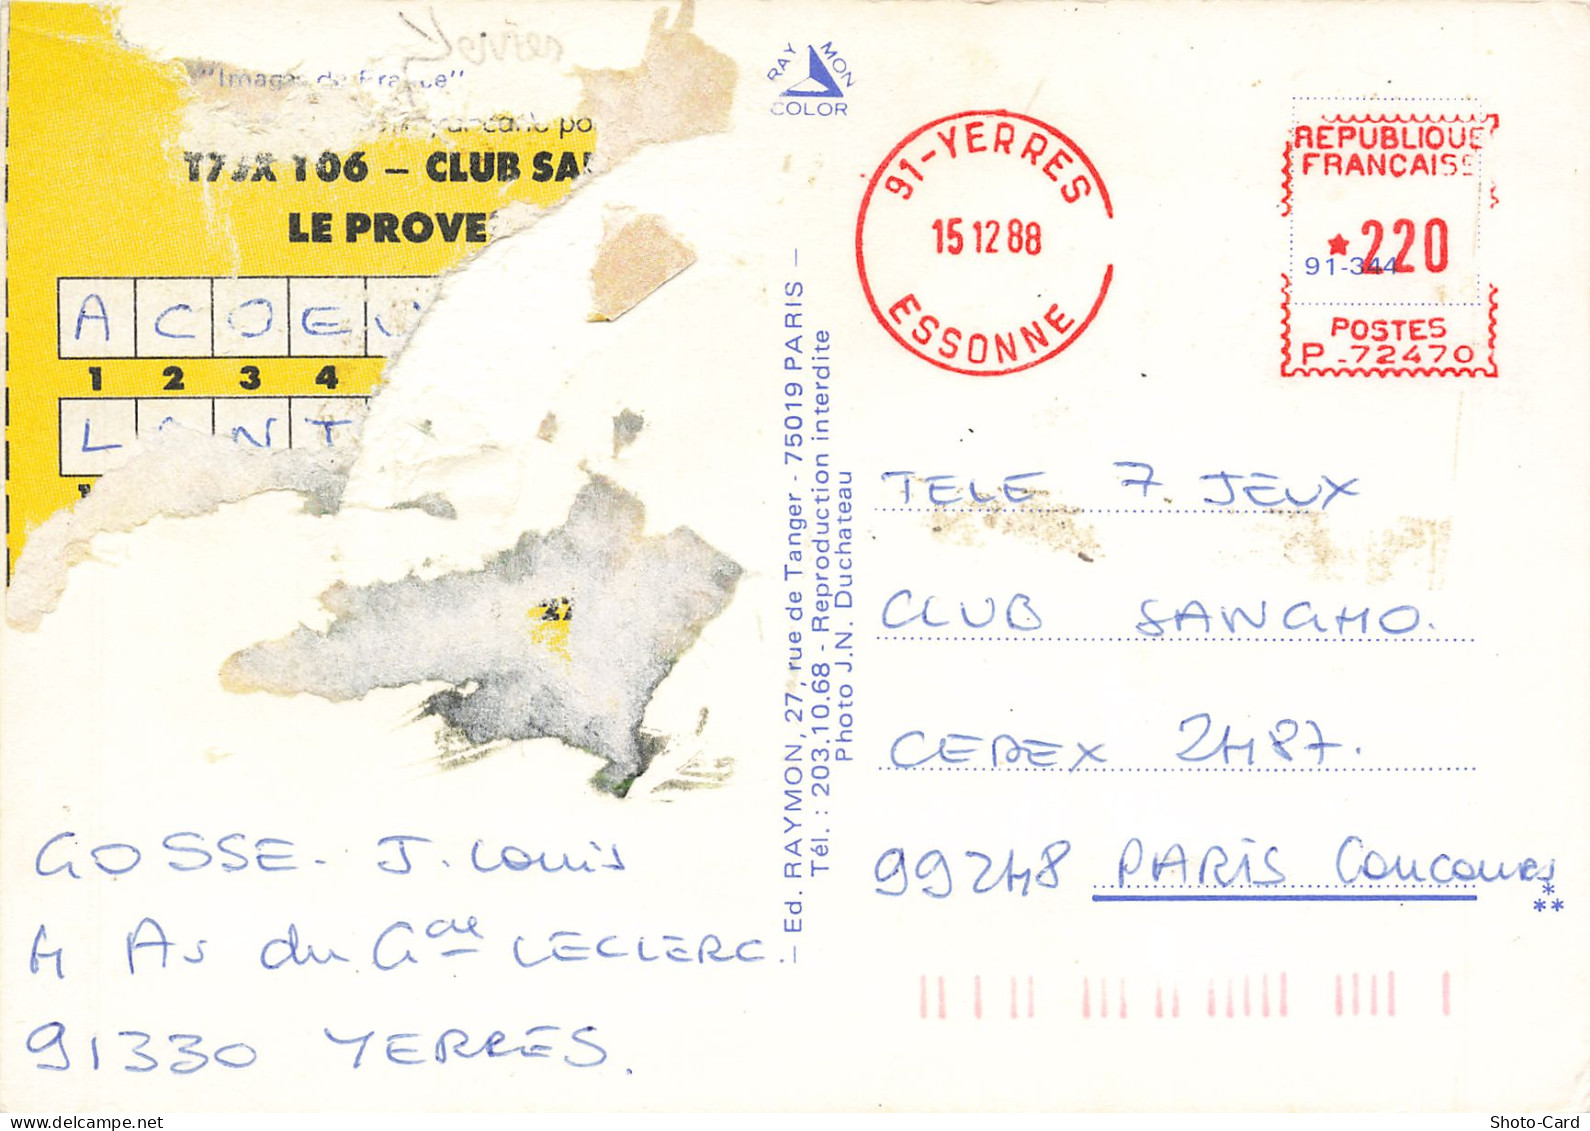 Yerres
"Images de France"
carte po
T7JX 106 – CLUB SA
LE PROVE
A C O E U
1 2 3 4
L A N T
GOSSE - J. Louis
4 Av du Gal LECLERC.
91330 YERRES.
— Ed. RAYMON, 27, rue de Tanger - 75019 PARIS —
Tél. : 203.10.68 - Reproduction interdite
Photo J.N. Duchateau
RAYMON
COLOR
91-YERRES
15 12 88
ESSONNE
REPUBLIQUE
FRANCAISE
*220
91-344
POSTES
P_72470
TELE 7 JEUX
CLUB SANCHO.
CEDEX 2487.
99248 PARIS Concours
***
Shoto-Card